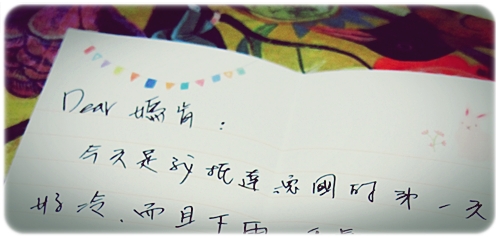 Dear 媽
今天是我抵達德國的第一天
好冷,而且下雨